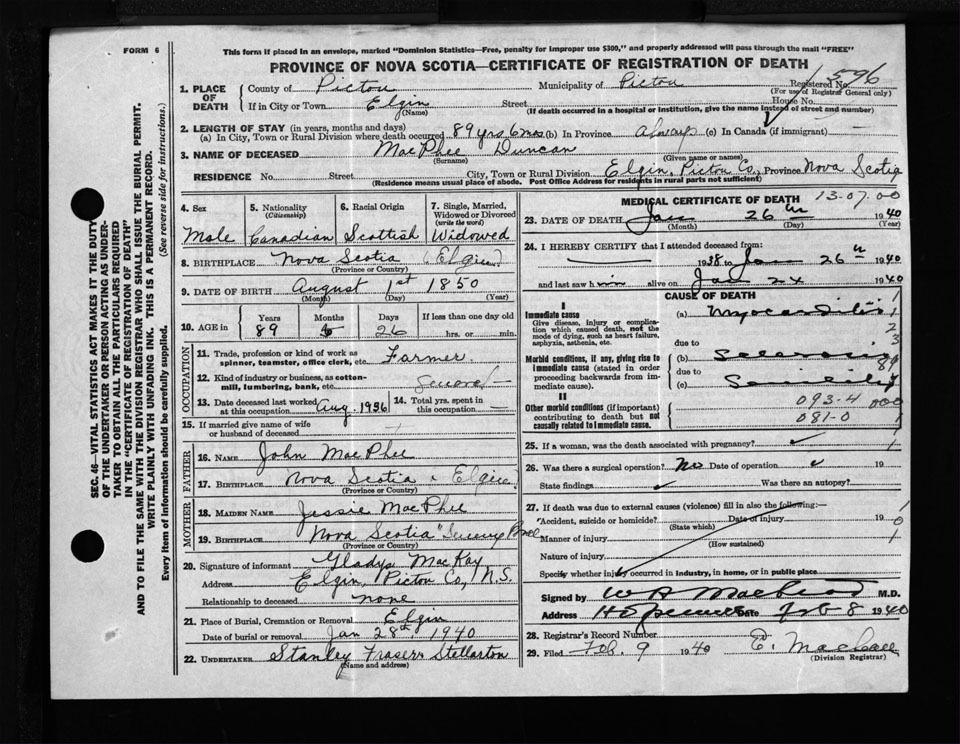 FORM 6
This form if placed in an envelope, marked "Dominion Statistics—Free, penalty for improper use $300," and properly addressed will pass through the mail "FREE"
PROVINCE OF NOVA SCOTIA—CERTIFICATE OF REGISTRATION OF DEATH
SEC. 46—VITAL STATISTICS ACT MAKES IT THE DUTY
OF THE UNDERTAKER OR PERSON ACTING AS UNDER-
TAKER TO OBTAIN ALL THE PARTICULARS REQUIRED
IN THE "CERTIFICATE OF REGISTRATION OF DEATH"
AND TO FILE THE SAME WITH THE DIVISION REGISTRAR WHO SHALL ISSUE THE BURIAL PERMIT.
WRITE PLAINLY WITH UNFADING INK. THIS IS A PERMANENT RECORD.
Every item of information should be carefully supplied. (See reverse side for instructions.)
1. PLACE OF DEATH
County of Pictou Municipality of Pictou Registered No. 596
(For use of Registrar General only)
If in City or Town Elgin Street House No.
(Name) (If death occurred in a hospital or institution, give the name instead of street and number)
2. LENGTH OF STAY (in years, months and days)
(a) In City, Town or Rural Division where death occurred 89 yrs 6 mos (b) In Province always (c) In Canada (if immigrant) —
3. NAME OF DECEASED MacPhee Duncan
(Surname) (Given name or names)
RESIDENCE No. Street City, Town or Rural Division Elgin, Pictou Co., Province Nova Scotia
(Residence means usual place of abode. Post Office Address for residents in rural parts not sufficient)
4. Sex 5. Nationality (Citizenship) 6. Racial Origin 7. Single, Married, Widowed or Divorced (write the word)
Male Canadian Scottish Widowed
8. BIRTHPLACE Nova Scotia (Elgin)
(Province or Country)
9. DATE OF BIRTH August 1st 1850
(Month) (Day) (Year)
10. AGE in Years Months Days If less than one day old
89 26 hrs. or min.
OCCUPATION
11. Trade, profession or kind of work as
spinner, teamster, office clerk, etc. Farmer
12. Kind of industry or business, as cotton-
mill, lumbering, bank, etc. General —
13. Date deceased last worked at this occupation Aug. 1936 14. Total yrs. spent in this occupation —
15. If married give name of wife
or husband of deceased
FATHER
16. NAME John MacPhee
17. BIRTHPLACE Nova Scotia Elgin
(Province or Country)
MOTHER
18. MAIDEN NAME Jessie MacPhee
19. BIRTHPLACE Nova Scotia
(Province or Country)
20. Signature of informant Gladys MacKay
Address Elgin, Pictou Co, N.S.
Relationship to deceased none
21. Place of Burial, Cremation or Removal Elgin
Date of burial or removal Jan 28th, 1940
22. UNDERTAKER Stanley Fraser Stellarton
(Name and address)
MEDICAL CERTIFICATE OF DEATH 13.07.00
23. DATE OF DEATH Jan 26th 1940
(Month) (Day) (Year)
24. I HEREBY CERTIFY that I attended deceased from:
— 1938 to Jan 26th 1940
and last saw him alive on Jan 24 1940
CAUSE OF DEATH
I
Immediate cause (a) Myocarditis
Give disease, injury or complica-
tion which caused death, not the
mode of dying, such as heart failure,
asphyxia, asthenia, etc.
due to
Morbid conditions, if any, giving rise to
immediate cause (stated in order
proceeding backwards from im-
mediate cause).
(b) Sclerosis
due to
(c) Senility
II
Other morbid conditions (if important)
contributing to death but not
causally related to immediate cause.
093-4 000
081-0
25. If a woman, was the death associated with pregnancy?
26. Was there a surgical operation? No Date of operation 19
State findings Was there an autopsy?
27. If death was due to external causes (violence) fill in also the following:—
Accident, suicide or homicide? Date of injury 19
(State which)
Manner of injury
(How sustained)
Nature of injury
Specify whether injury occurred in industry, in home, or in public place
Signed by M.D.
Address Date Feb 8 1940
28. Registrar's Record Number
29. Filed Feb. 9 1940
(Division Registrar)